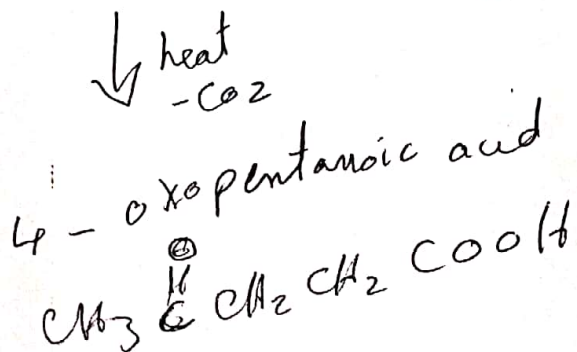 heat
-CO2
4 - oxopentanoic acid
O
||
CH3 C CH2 CH2 COOH